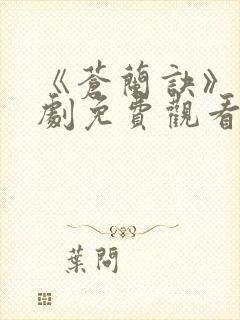 《蒼蘭訣》
劇免費觀看
葉問